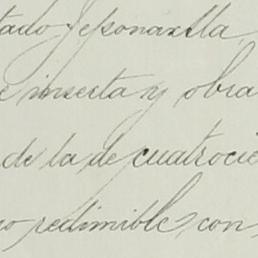 tado Jesonaxtla
e inserta y obra
de la de cuatrocie
no redimible, con